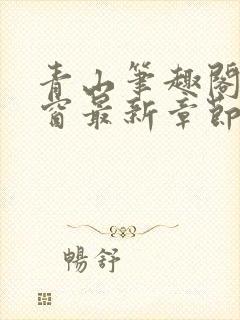 青山筆趣閣
窗最新章節
暢舒